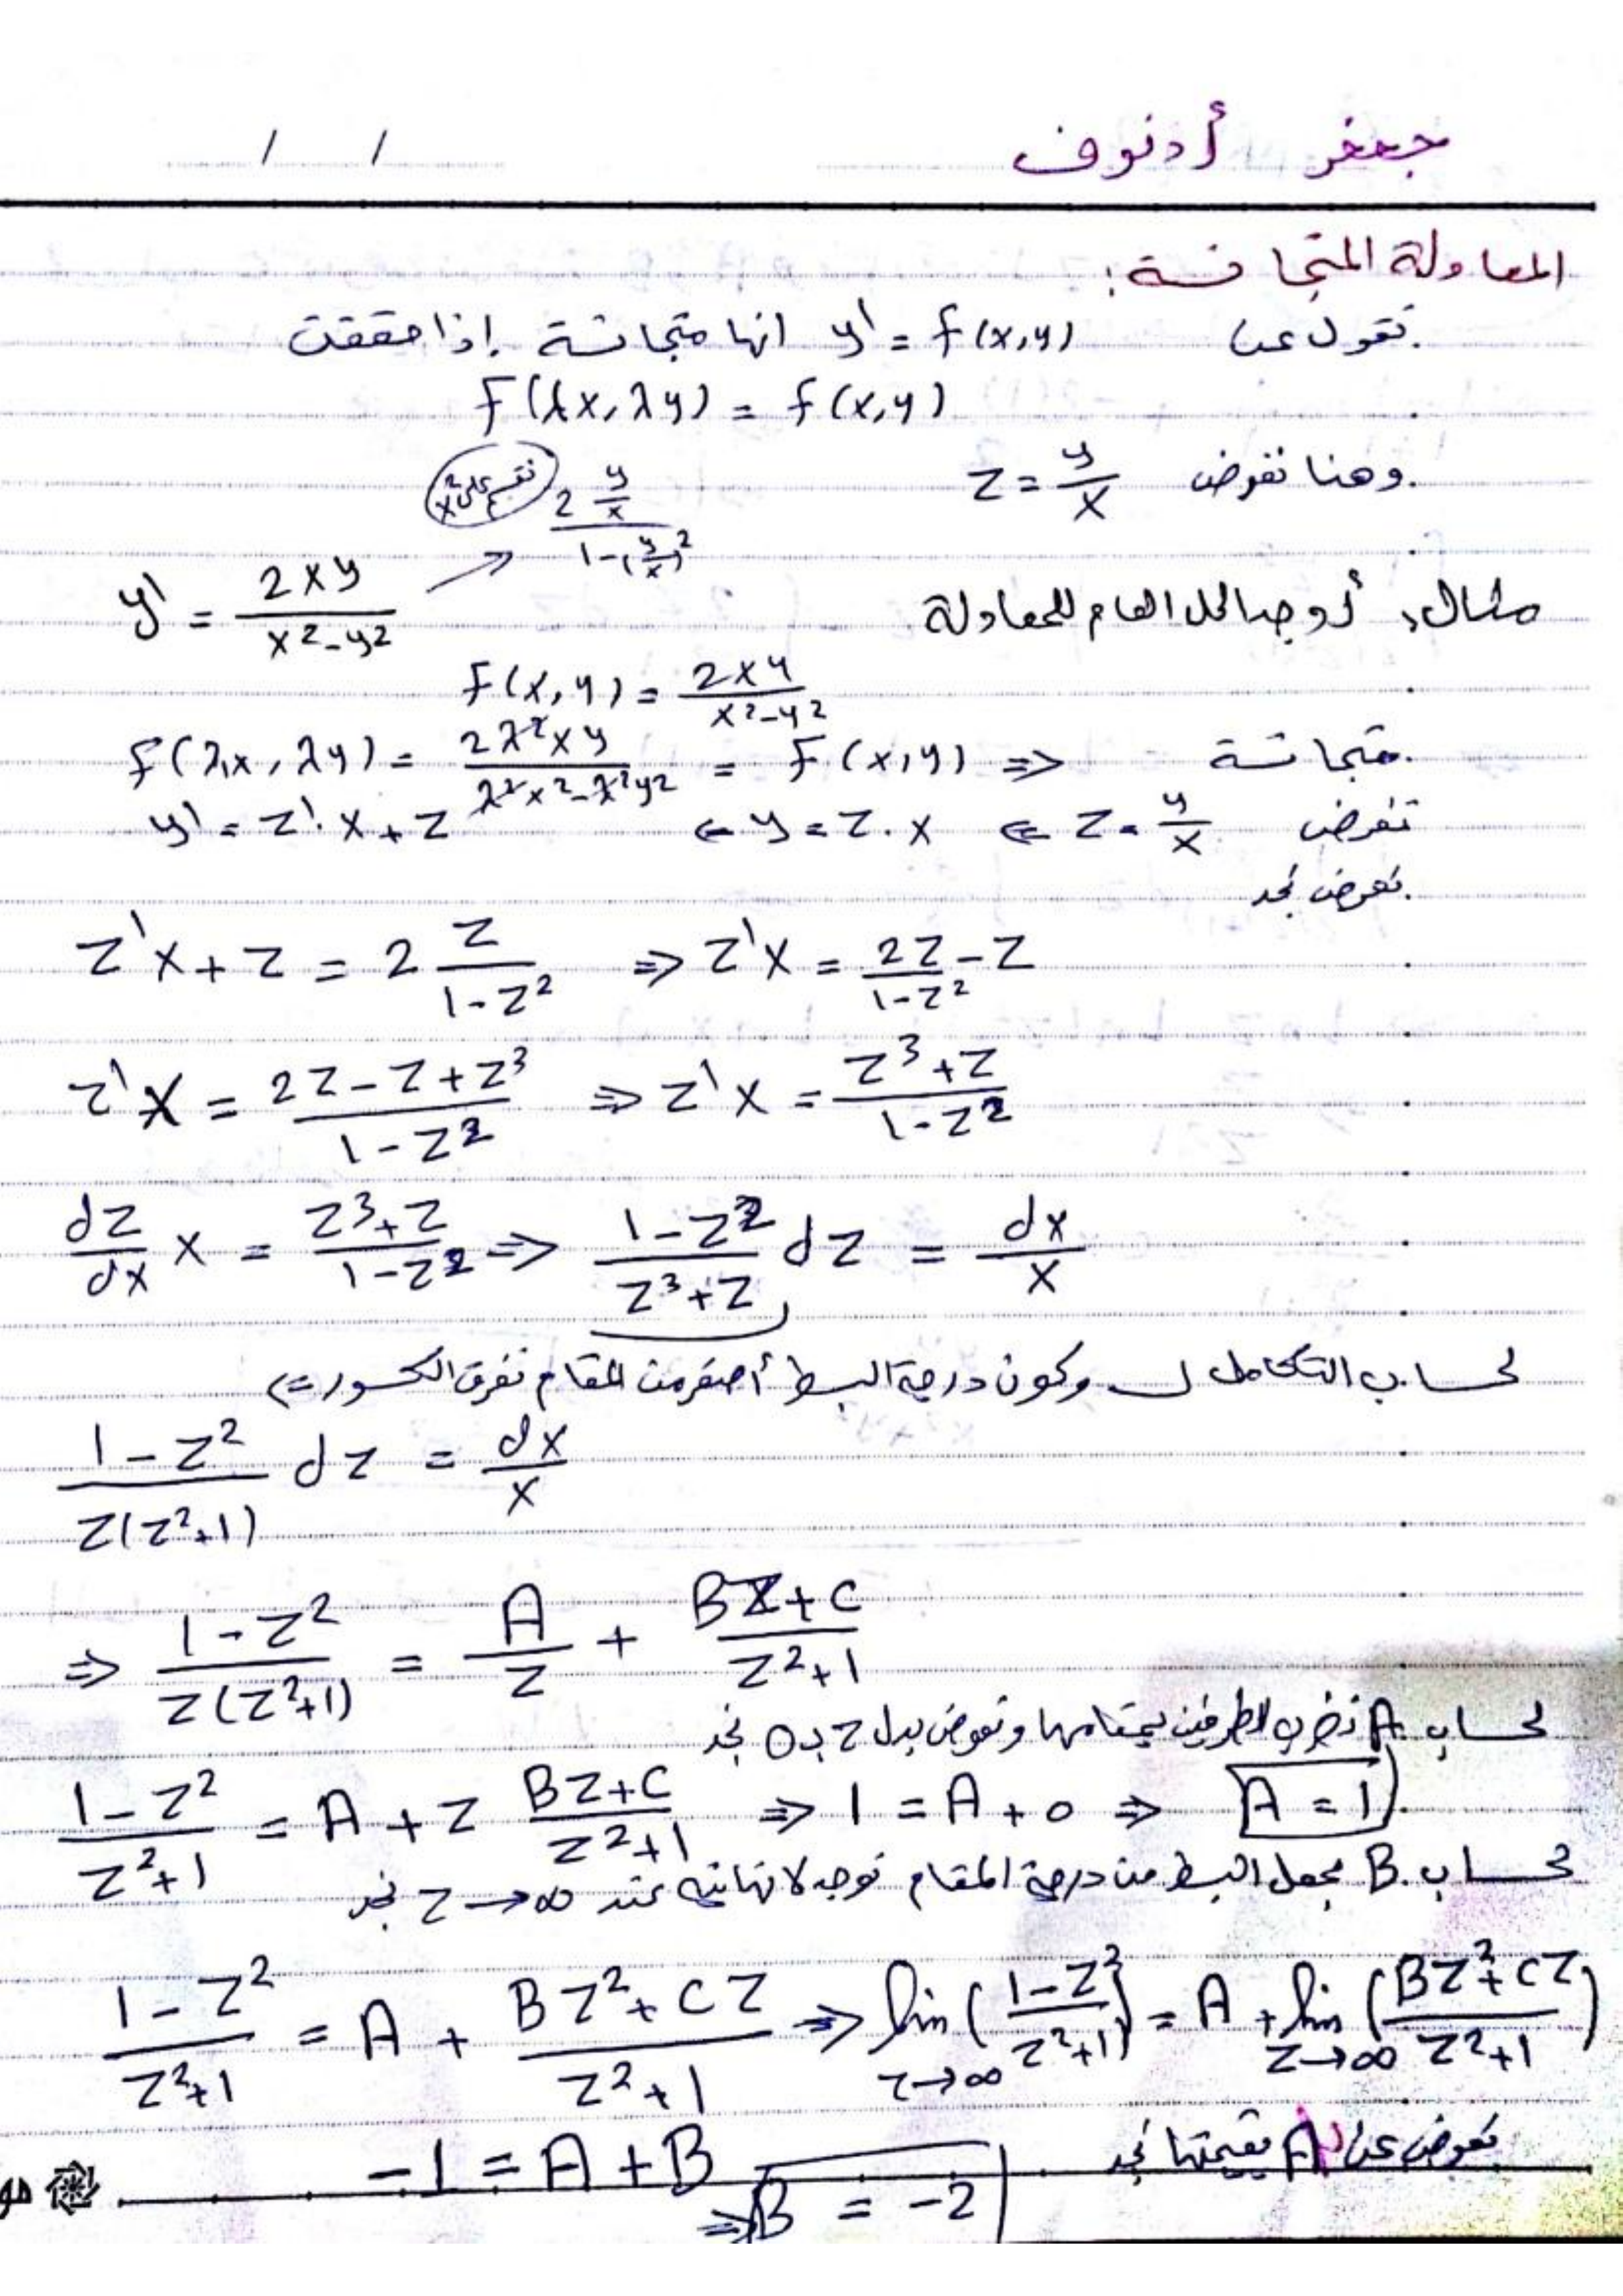 جعفر أدنوف
/ /
المعادلة المتجانسة:
نقول عن y' = f(x,y) انها متجانسة إذا حققت
f(λx, λy) = f(x,y)
وهنا نفرض z = y/x
نقسم على x²
2 y/x / 1-(y/x)²
مثال: أوجد الحل العام للمعادلة y' = 2xy / x²-y² →
f(x,y) = 2xy / x²-y²
f(λx, λy) = 2λ²xy / λ²x²-λ²y² = f(x,y) ⇒ متجانسة
نفرض z = y/x ⇐ y = z.x ← y' = z'.x + z
نعوض نجد
z'x + z = 2 z / 1-z² ⇒ z'x = 2z / 1-z² - z
z'x = 2z-z+z³ / 1-z² ⇒ z'x = z³+z / 1-z²
dz/dx x = z³+z / 1-z² ⇒ 1-z² / z³+z dz = dx/x
لحساب التكامل لـ وكون درجة البسط أصغر من المقام نفرق الكسور ⇐
1-z² / z(z²+1) dz = dx/x
⇒ 1-z² / z(z²+1) = A/z + Bz+C / z²+1
لحساب A نضرب الطرفين بمقامها ونعوض بدل z بـ 0 نجد
1-z² / z²+1 = A + z Bz+C / z²+1 ⇒ 1 = A + 0 ⇒ A = 1
لحساب B نجعل البسط من درجة المقام نوجد لانهاية عند z → ∞ نجد
1-z² / z²+1 = A + Bz²+Cz / z²+1 ⇒ lim z→∞ (1-z² / z²+1) = A + lim z→∞ (Bz²+Cz / z²+1)
نعوض عن A بقيمتها نجد
-1 = A + B
⇒ B = -2